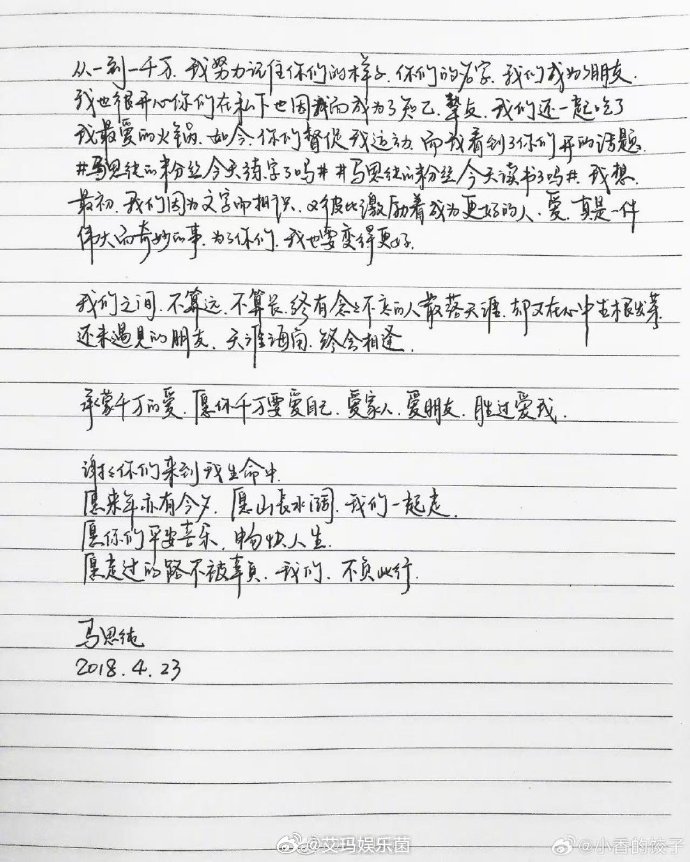 从一到一千万.我努力记住你们的样子.你们的名字.我们成为了朋友.
我也很开心你们在私下也因我而成为了知己.挚友.我们还一起吃了
我最爱的火锅.如今.你们督促我运动.而我看到了你们开的话题.
#马思纯的粉丝今天练字了吗# #马思纯的粉丝今天读书了吗#.我想.
最初.我们因为文字而相识.又彼此激励着成为更好的人.爱.真是一件
伟大而奇妙的事.为了你们.我也要变得更好.
我们之间.不算远.不算长.终有念念不忘的人散落天涯.却又在心中生根发芽.
还未遇见的朋友.天涯海角.终会相逢.
承蒙千万的爱.愿你千万要爱自己.爱家人.爱朋友.胜过爱我.
谢谢你们来到我生命中.
愿来年亦有今夕.愿山长水阔.我们一起走.
愿你们平安喜乐.畅快人生.
愿走过的路不被辜负.我们.不负此行.
马思纯
2018.4.23
@艾玛娱乐菌
@小香的饺子